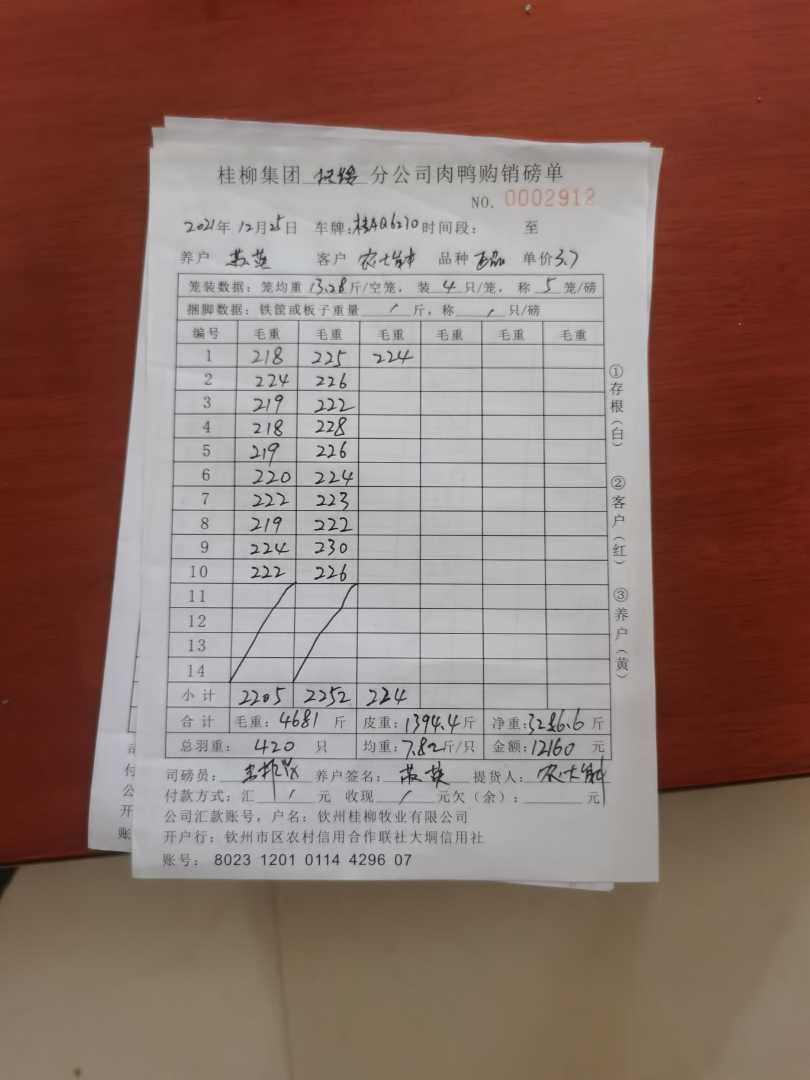 桂柳集团 钦锋 分公司肉鸭购销磅单
NO. 0002912
2021年 12月25日 车牌:桂AQ6270 时间段: 至
养户 客户 品种 单价3.7
笼装数据: 笼均重 13.28 斤/空笼, 装 4 只/笼, 称 5 笼/磅
捆脚数据: 铁筐或板子重量 / 斤, 称 / 只/磅
编号 毛重 毛重 毛重 毛重 毛重 毛重
1 218 225 224
2 224 226
3 219 222
4 218 228
5 219 226
6 220 224
7 222 223
8 219 222
9 224 230
10 222 226
11
12
13
14
小计 2205 2252 224
合计 毛重: 4681 斤 皮重: 1394.4 斤 净重: 3286.6 斤
总羽重: 420 只 均重: 7.82 斤/只 金额: 12160 元
司磅员: 养户签名: 提货人:
付款方式: 汇 / 元 收现 / 元欠(余): 元
公司汇款账号, 户名: 钦州桂柳牧业有限公司
开户行: 钦州市区农村信用合作联社大垌信用社
账号: 8023 1201 0114 4296 07
①存根(白)
②客户(红)
③养户(黄)